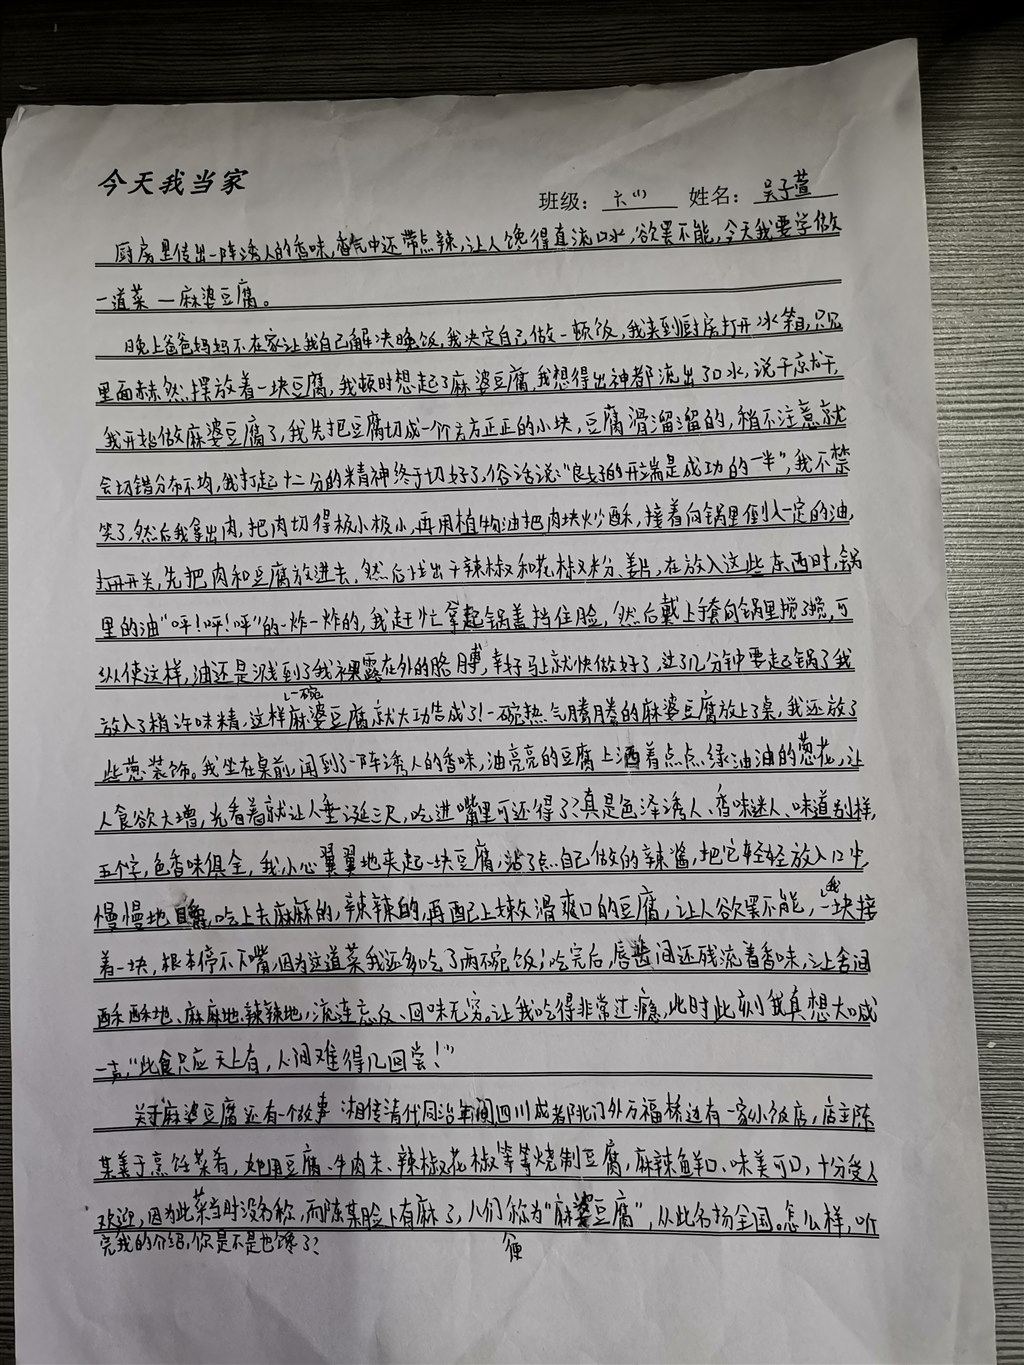 今天我当家
班级：六(1) 姓名：吴子萱
厨房里传出一阵诱人的香味，香气中还带点辣，让人馋得直流口水，欲罢不能，今天我要学做
一道菜—麻婆豆腐。
晚上爸爸妈妈不在家让我自己解决晚饭，我决定自己做一顿饭，我来到厨房打开冰箱，只见
里面赫然摆放着一块豆腐，我顿时想起了麻婆豆腐，我想得出神都流出了口水，说干就干，
我开始做麻婆豆腐了，我先把豆腐切成一个个方方正正的小块，豆腐滑溜溜的，稍不注意就
会切错分布不均，我打起十二分的精神终于切好了，俗话说："良好的开端是成功的一半"，我不禁
笑了，然后我拿出肉，把肉切得极小极小，再用植物油把肉块炒酥，接着向锅里倒入一定的油，
打开开关，先把肉和豆腐放进去，然后找出干辣椒和花椒粉、姜片，在放入这些东西时，锅
里的油"呯！呯！呯"的一炸一炸的，我赶忙拿起锅盖挡住脸，然后戴上手套向锅里搅了搅，可
纵使这样，油还是溅到了我裸露在外的胳膊，幸好马上就快做好了，过了几分钟要起锅了我
放入了稍许味精，这样一碗麻婆豆腐就大功告成了！一碗热气腾腾的麻婆豆腐放上了桌，我还放了
些葱装饰。我坐在桌前，闻到了一阵诱人的香味，油亮亮的豆腐上洒着点点绿油油的葱花，让
人食欲大增，光看着就让人垂涎三尺，吃进嘴里可还得了、真是色泽诱人、香味迷人、味道别样，
五个字，色香味俱全，我小心翼翼地夹起一块豆腐，沾了点自己做的辣酱，把它轻轻放入口中，
慢慢地咀嚼，吃上去麻麻的，辣辣的，再配上嫩滑爽口的豆腐，让人欲罢不能，我一块接
着一块，根本停不下嘴，因为这道菜我还多吃了两碗饭；吃完后，唇齿间还残流着香味，让舌间
酥酥地、麻麻地、辣辣地，流连忘反、回味无穷。让我吃得非常过瘾，此时此刻我真想大喊
一声，"此食只应天上有，人间难得几回尝！"
关于麻婆豆腐还有一个故事 相传清代同治年间四川成都北门外万福桥边有一家小饭店，店主陈
某善于烹饪菜肴，她用豆腐、牛肉末、辣椒花椒等等烧制豆腐，麻辣鱼羊口、味美可口，十分受人
欢迎，因为此菜当时没名称，而陈某脸上有麻子，人们便称为"麻婆豆腐"，从此名扬全国。怎么样，听
完我的介绍，你是不是也馋了？